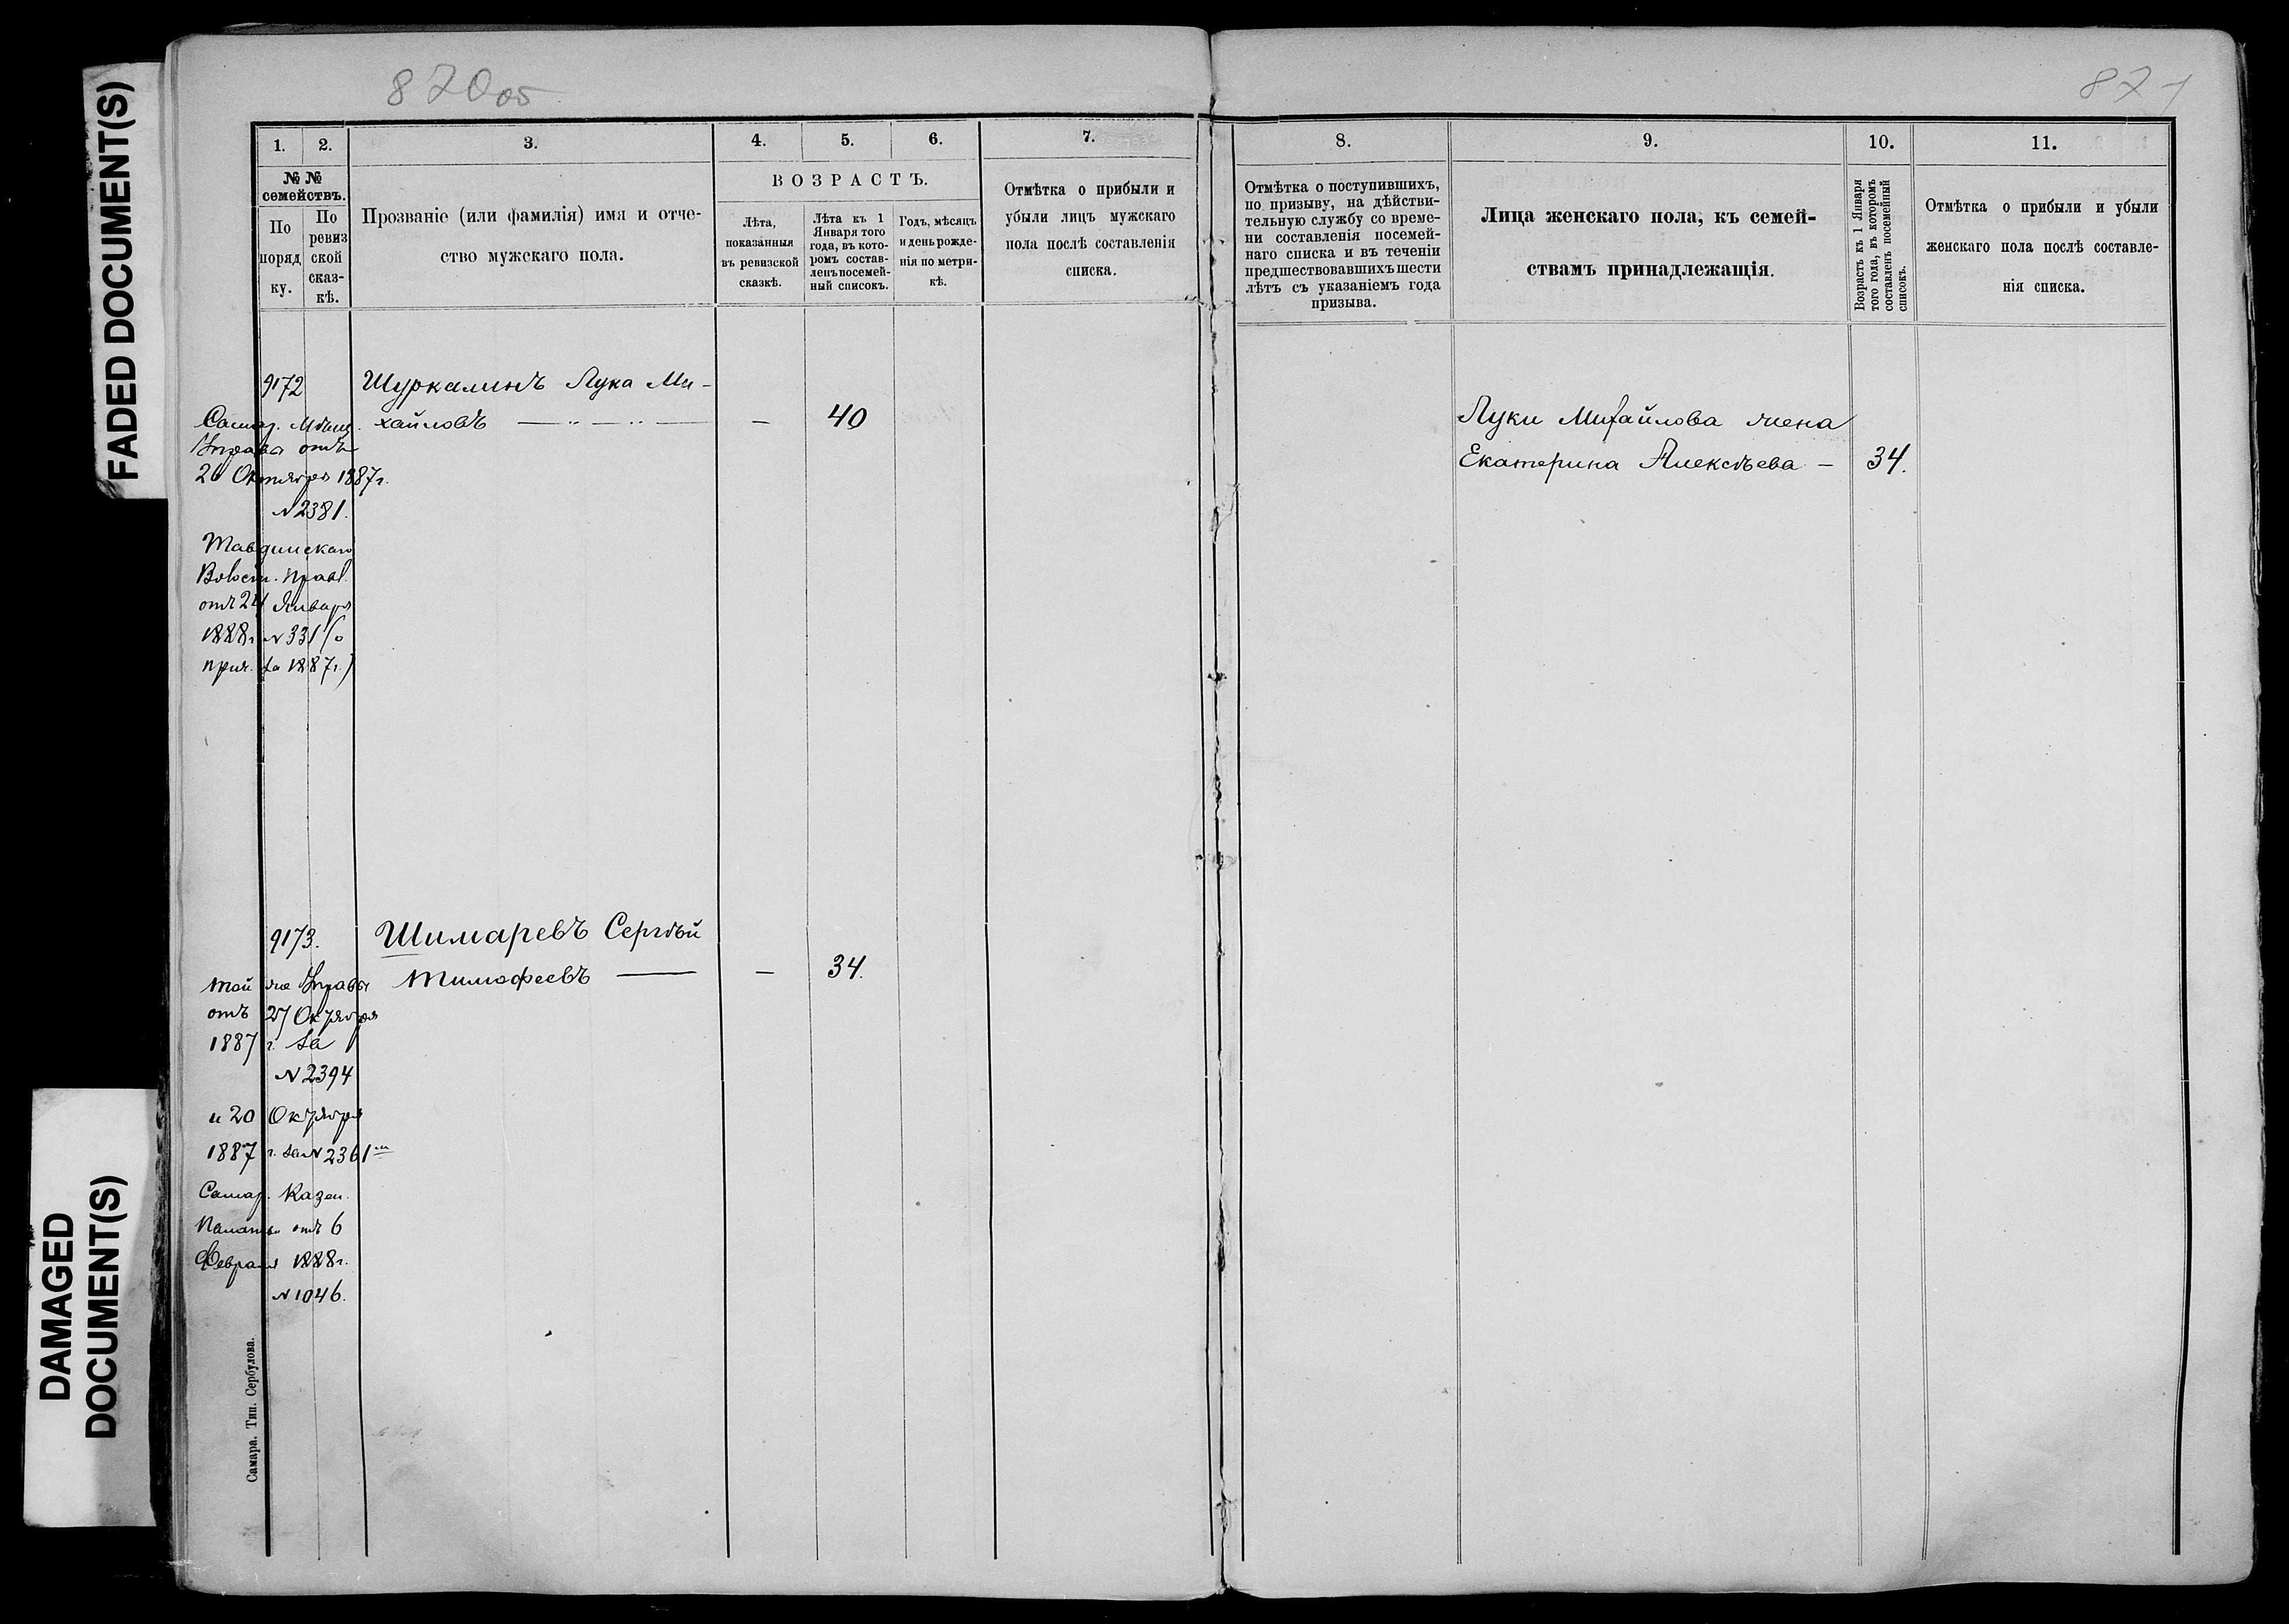 FADED DOCUMENT(S)
DAMAGED
DOCUMENT(S)
870 об
1. 2. 3. 4. 5. 6. 7.
№ №
семействъ.
По
поряд
ку.
По
ревиз
ской
сказ-
кѣ.
Прозваніе (или фамилія) имя и отче-
ство мужскаго пола.
ВОЗРАСТЪ.
Лѣта,
показанныя
въ ревизской
сказкѣ.
Лѣта къ 1
Января того
года, въ кото-
ромъ состав-
ленъ посемей-
ный списокъ.
Годъ, мѣсяцъ
и день рожде-
нія по метри-
кѣ.
Отмѣтка о прибыли и
убыли лицъ мужскаго
пола послѣ составленія
списка.
9172 Шуркалинъ Лука Ми-
хайловъ — 40
Самар. Мѣщ.
Управы отъ
26 Октября 1887 г.
№ 2381.
Волост. Правл.
отъ 24 Января
1888 г. № 331 (о
прич. за 1887 г.)
9173. Шимаревъ Сергѣй
Тимофеевъ — — 34.
Той же Управы
отъ 27 Октября
1887 г. за
№ 2394
и 20 Октября
1887 г. за № 2361
Самар. Казен.
Палаты отъ 6
Февраля 1888 г.
№ 1046.
Самара. Тип. Сербулова.
871
8. 9. 10. 11.
Отмѣтка о поступившихъ,
по призыву, на дѣйстви-
тельную службу со време-
ни составленія посемей-
наго списка и въ теченіи
предшествовавшихъ шести
лѣтъ съ указаніемъ года
призыва.
Лица женскаго пола, къ семей-
ствамъ принадлежащія.
Возрастъ къ 1 Января
того года, въ которомъ
составленъ посемейный
списокъ.
Отмѣтка о прибыли и убыли
женскаго пола послѣ составле-
нія списка.
Луки Михайлова жена
Екатерина Алексѣева — 34.